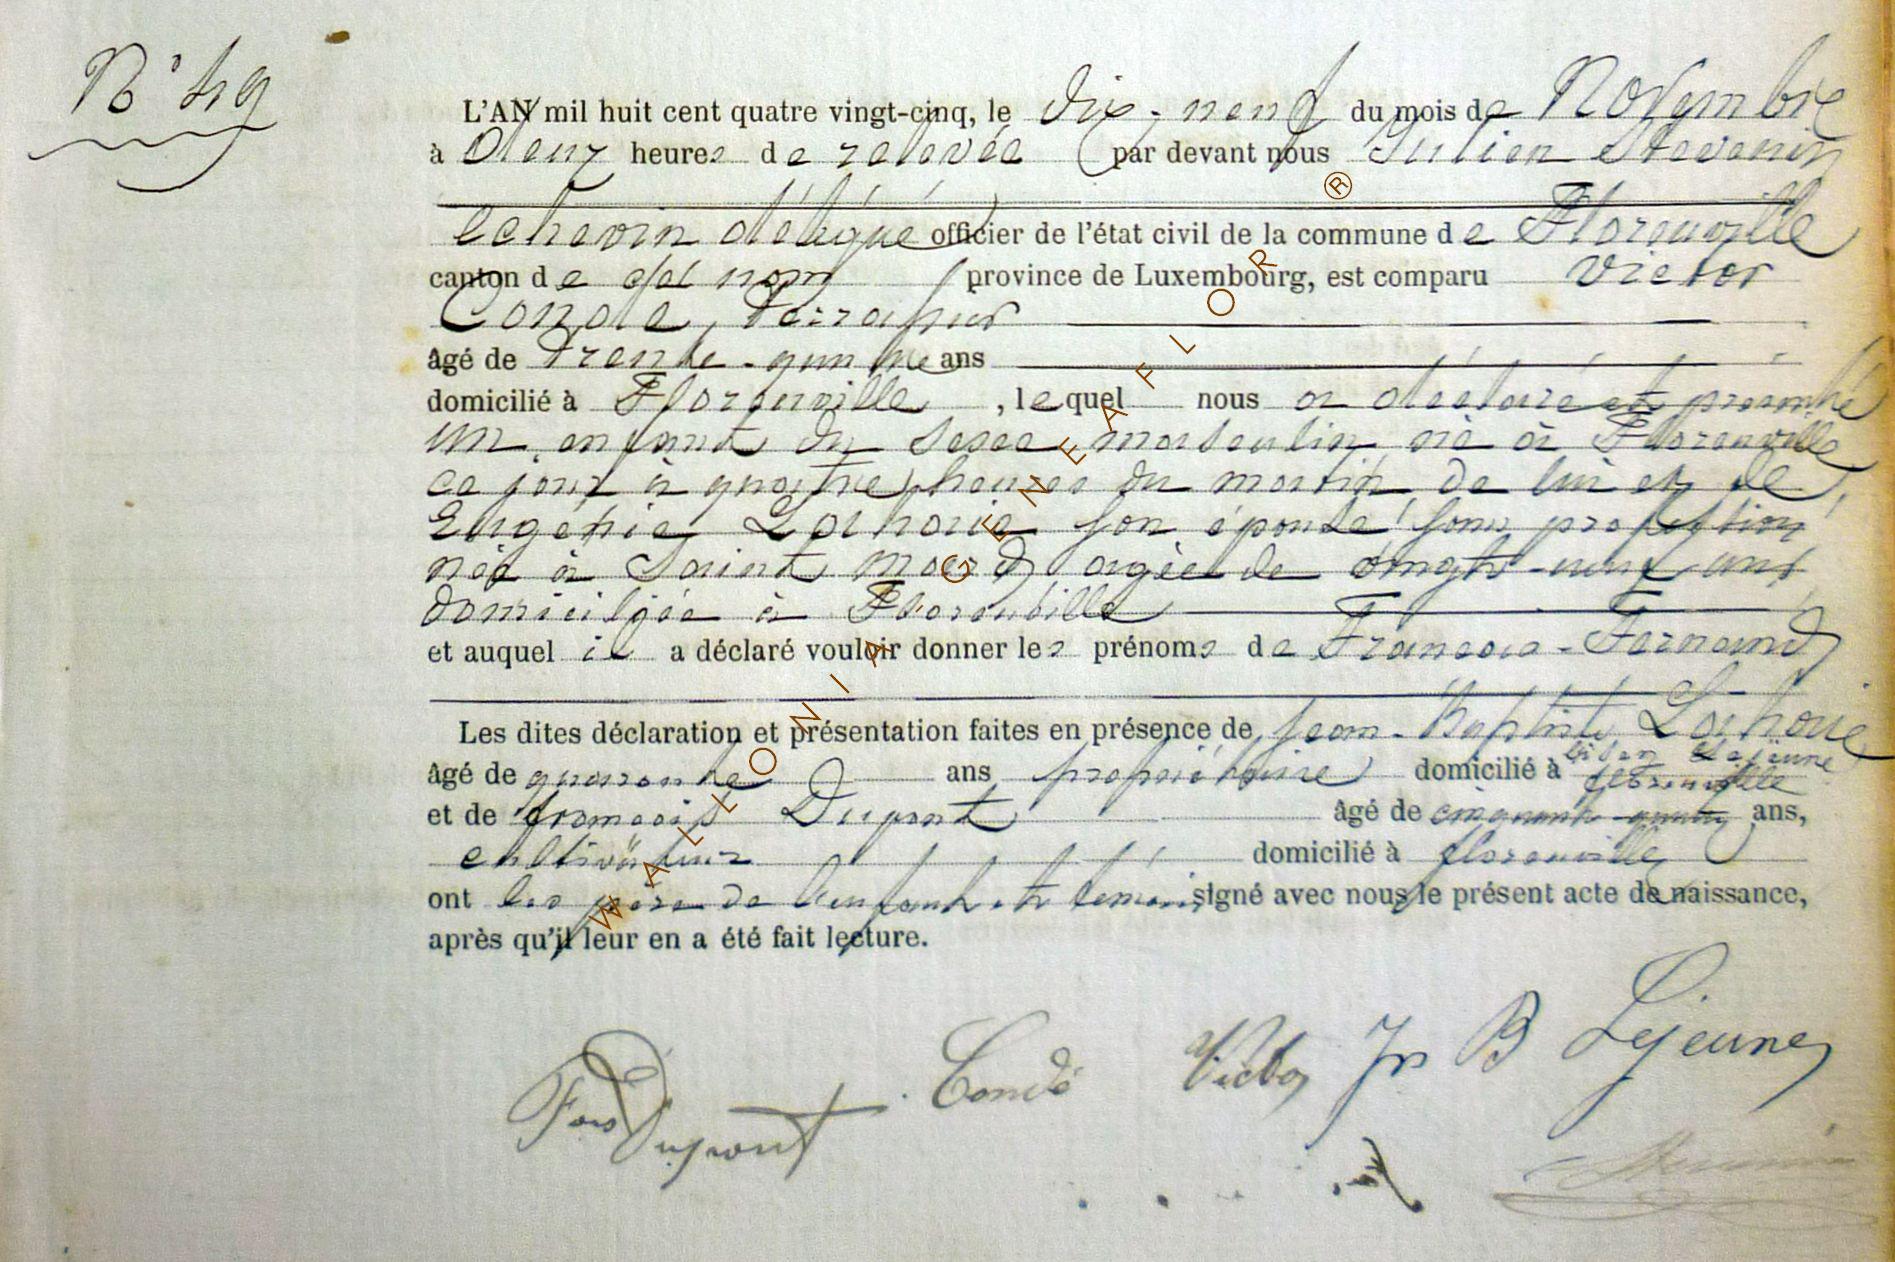 N° 49
L'AN mil huit cent quatre vingt-cinq, le dix-neuf du mois de Novembre
à deux heures de relevée par devant nous Julien Stevenin
echevin délégué officier de l'état civil de la commune de Florenville
canton de dal nom province de Luxembourg, est comparu Victor
Condé,
âgé de trente-quinze ans
domicilié à Florenville, lequel nous a déclaré et présenté
un enfant du sexe masculin né à Florenville
ce jour à quatre heures du matin de lui et de
Eugénie Lahoue son épouse sans profession
née à Saint Mard agée de vingt-neuf ans
domiciliée à Florenville
et auquel il a déclaré vouloir donner les prénoms de Francois-Fernand
Les dites déclaration et présentation faites en présence de Jean-Baptiste Lahoue
lisez Lejeune
âgé de quarante ans propriétaire domicilié à florenville
et de francois Dupont âgé de cinquante-quatre ans,
cultivateur domicilié à florenville
ont les père de l'enfant et témoins signé avec nous le présent acte de naissance,
après qu'il leur en a été fait lecture.
Fois Dupont Condé Victor Jn B Lejeune
WALLONIA GENEAFLOR ®